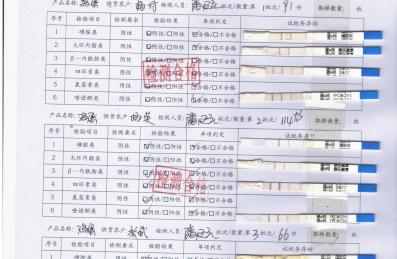 产品名称: 鸡蛋 供货农户: 检测人员: 批次/数量:第1批次/91件 取样数量: 枚
序号 检验项目 检测要求 检验结果 单项判定 试纸条存档
1 磺胺类 阴性 ☑阴性/□阳性 ☑合格/□不合格
2 大环内酯类 阴性 ☑阴性/□阳性 ☑合格/□不合格
3 β-内酰胺类 阴性 ☑阴性/□阳性 ☑合格/□不合格
4 四环素类 阴性 ☑阴性/□阳性 ☑合格/□不合格
5 氟苯尼类 阴性 ☑阴性/□阳性 ☑合格/□不合格
6 喹诺酮类 阴性 ☑阴性/□阳性 ☑合格/□不合格
检测合格
产品名称: 鸡蛋 供货农户: 检测人员: 批次/数量:第2批次/114件 取样数量: 枚
序号 检验项目 检测要求 检验结果 单项判定 试纸条存档
1 磺胺类 阴性 ☑阴性/□阳性 ☑合格/□不合格
2 大环内酯类 阴性 ☑阴性/□阳性 ☑合格/□不合格
3 β-内酰胺类 阴性 ☑阴性/□阳性 ☑合格/□不合格
4 四环素类 阴性 ☑阴性/□阳性 ☑合格/□不合格
5 阴性 ☑阴性/□阳性 ☑合格/□不合格
6 喹诺酮类 阴性 ☑阴性/□阳性 ☑合格/□不合格
检测合格
产品名称: 鸡蛋 供货农户: 检测人员: 批次/数量:第3批次/66件 取样数量: 枚
序号 检验项目 检测要求 检验结果 单项判定 试纸条存档
1 磺胺类 阴性 ☑阴性/□阳性 ☑合格/□不合格